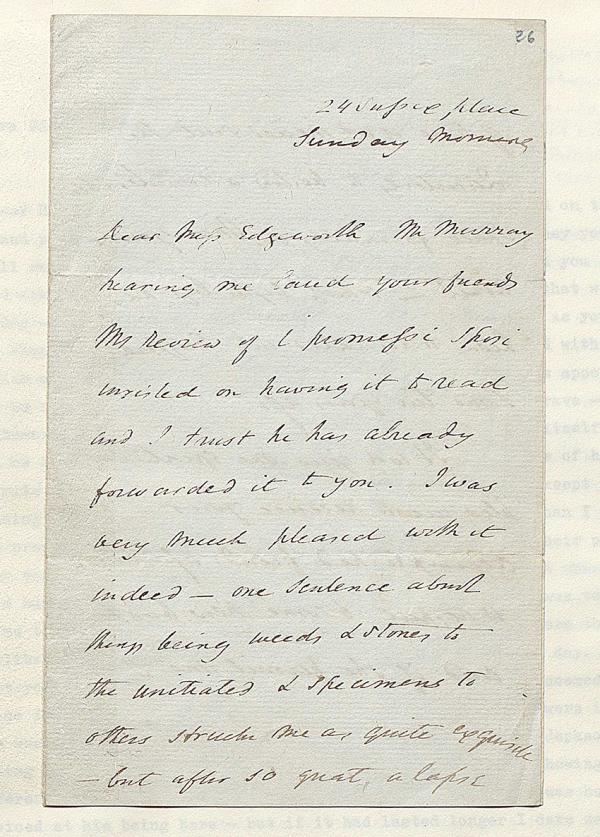 26
24 Sussex place
Sunday Morning
Dear Miss Edgeworth Mr Murray
hearing me laud your friends
MS Review of i promessi Sposi
insisted on having it to read
and I trust he has already
forwarded it to you. I was
very much pleased with it
indeed – one sentence about
things being weeds & stones to
the unitiated & specimens to
others struck me as quite exquisite
– but after so great, a lapse